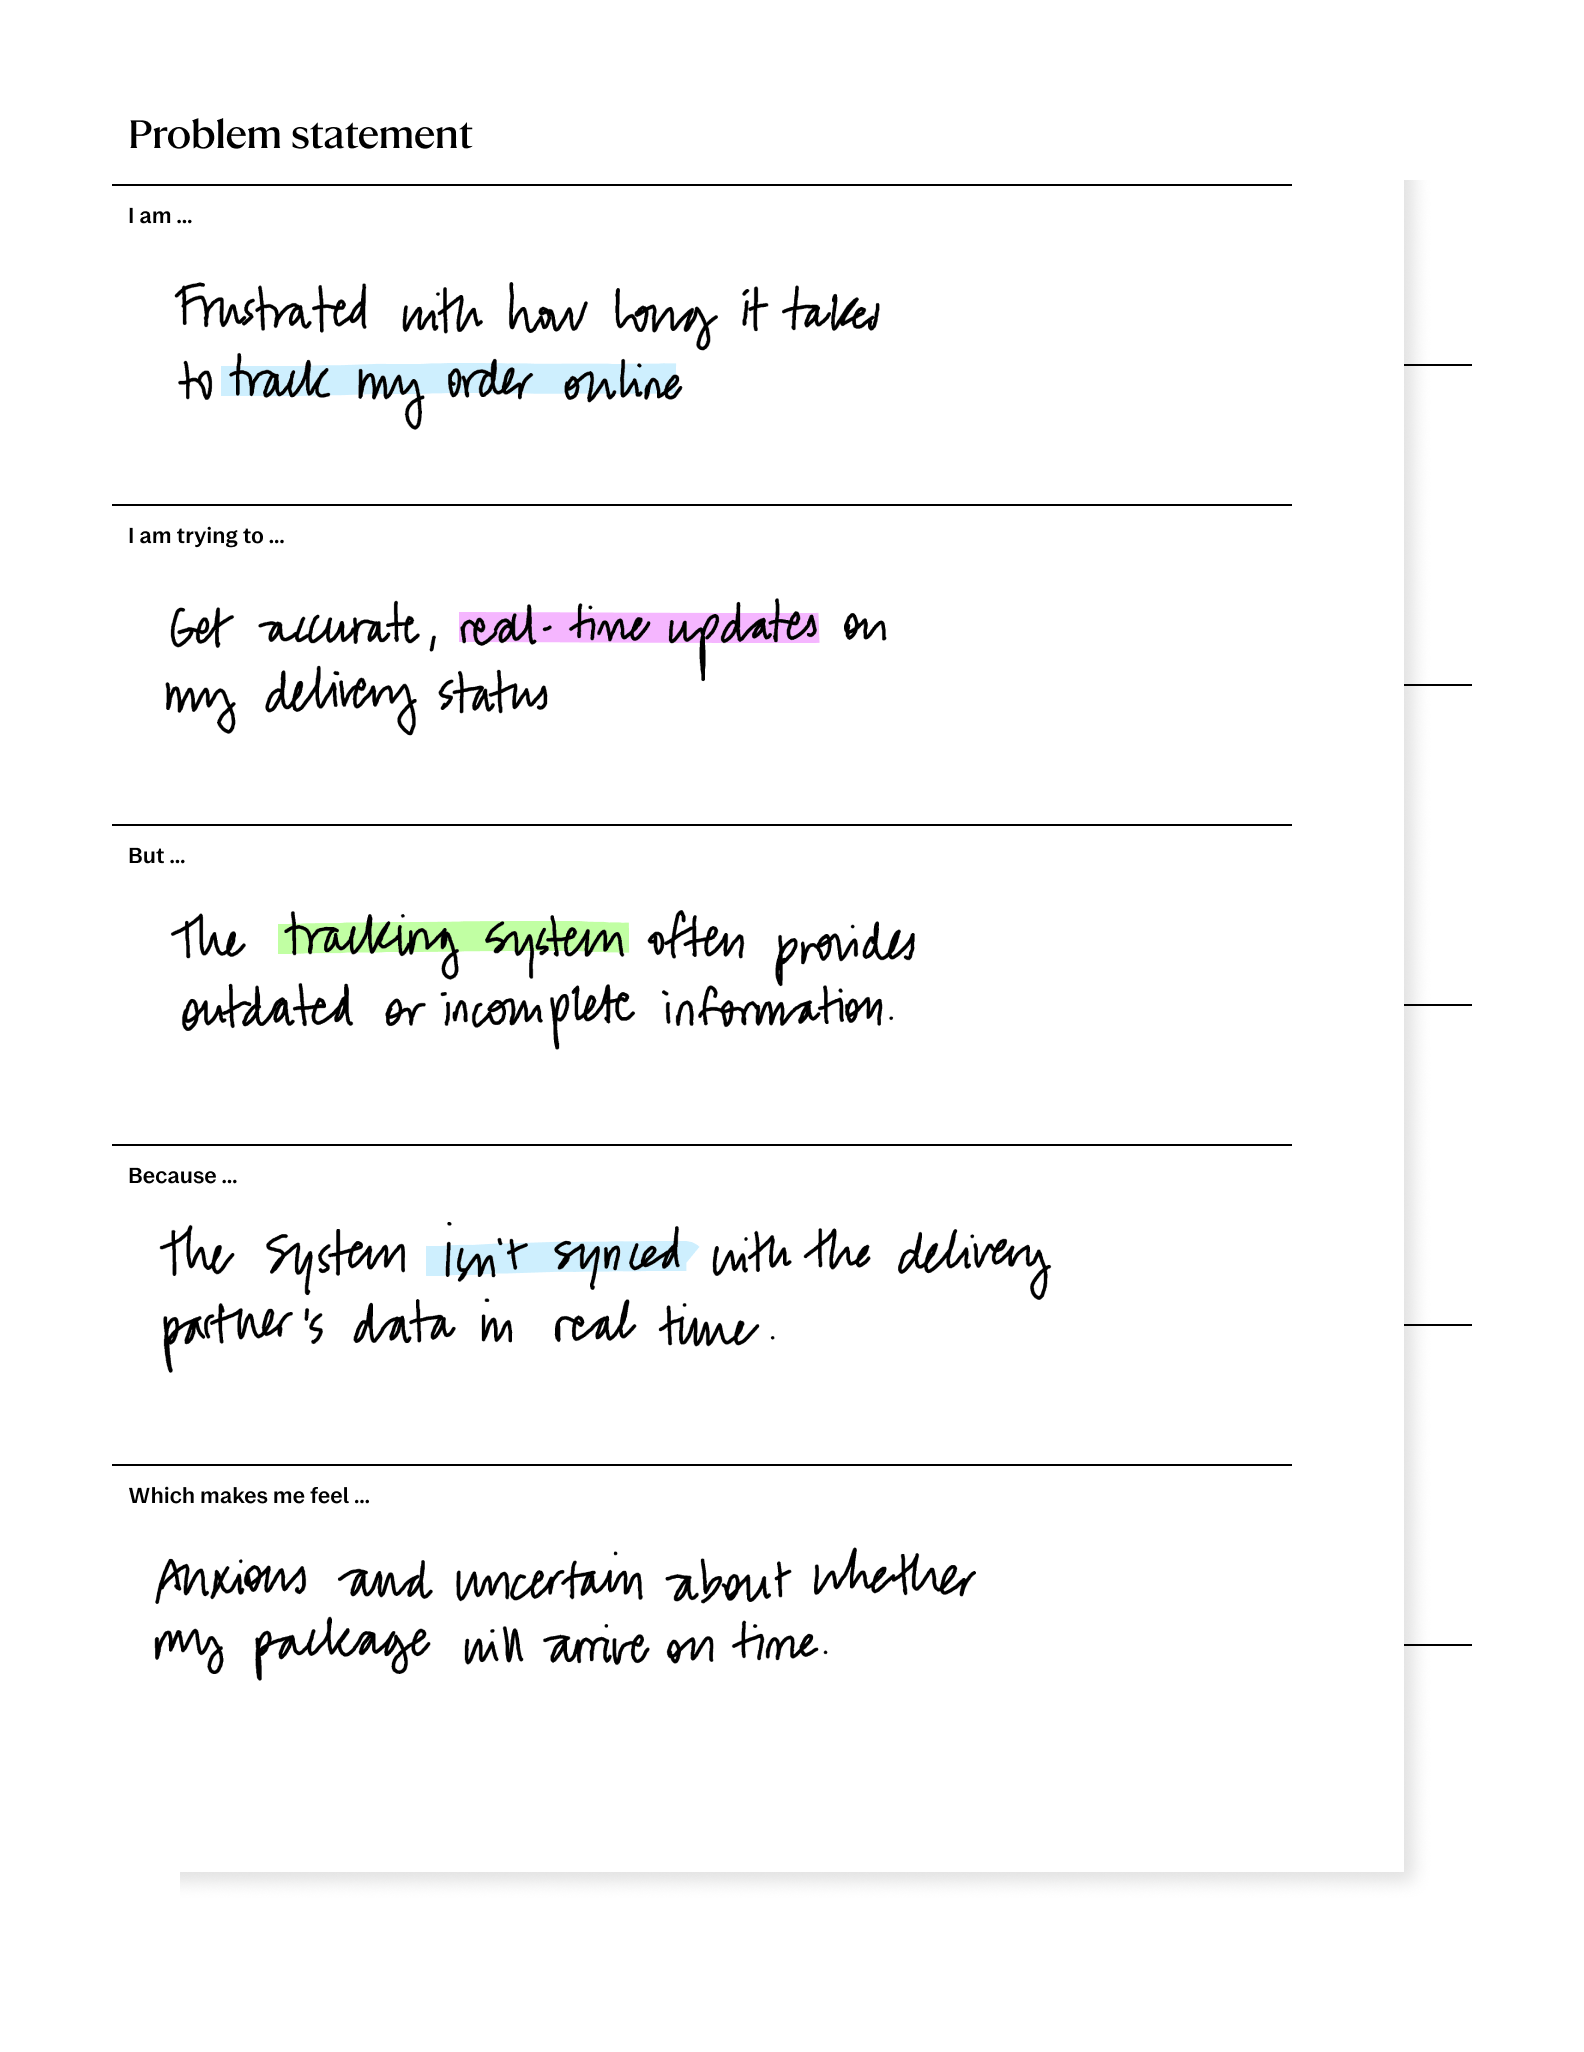 Problem statement
I am ...
Frustrated with how long it takes
to track my order online
I am trying to ...
Get accurate, real-time updates on
my delivery status
But ...
The tracking system often provides
outdated or incomplete information.
Because ...
The system isn't synced with the delivery
partner's data in real time.
Which makes me feel ...
Anxious and uncertain about whether
my package will arrive on time.